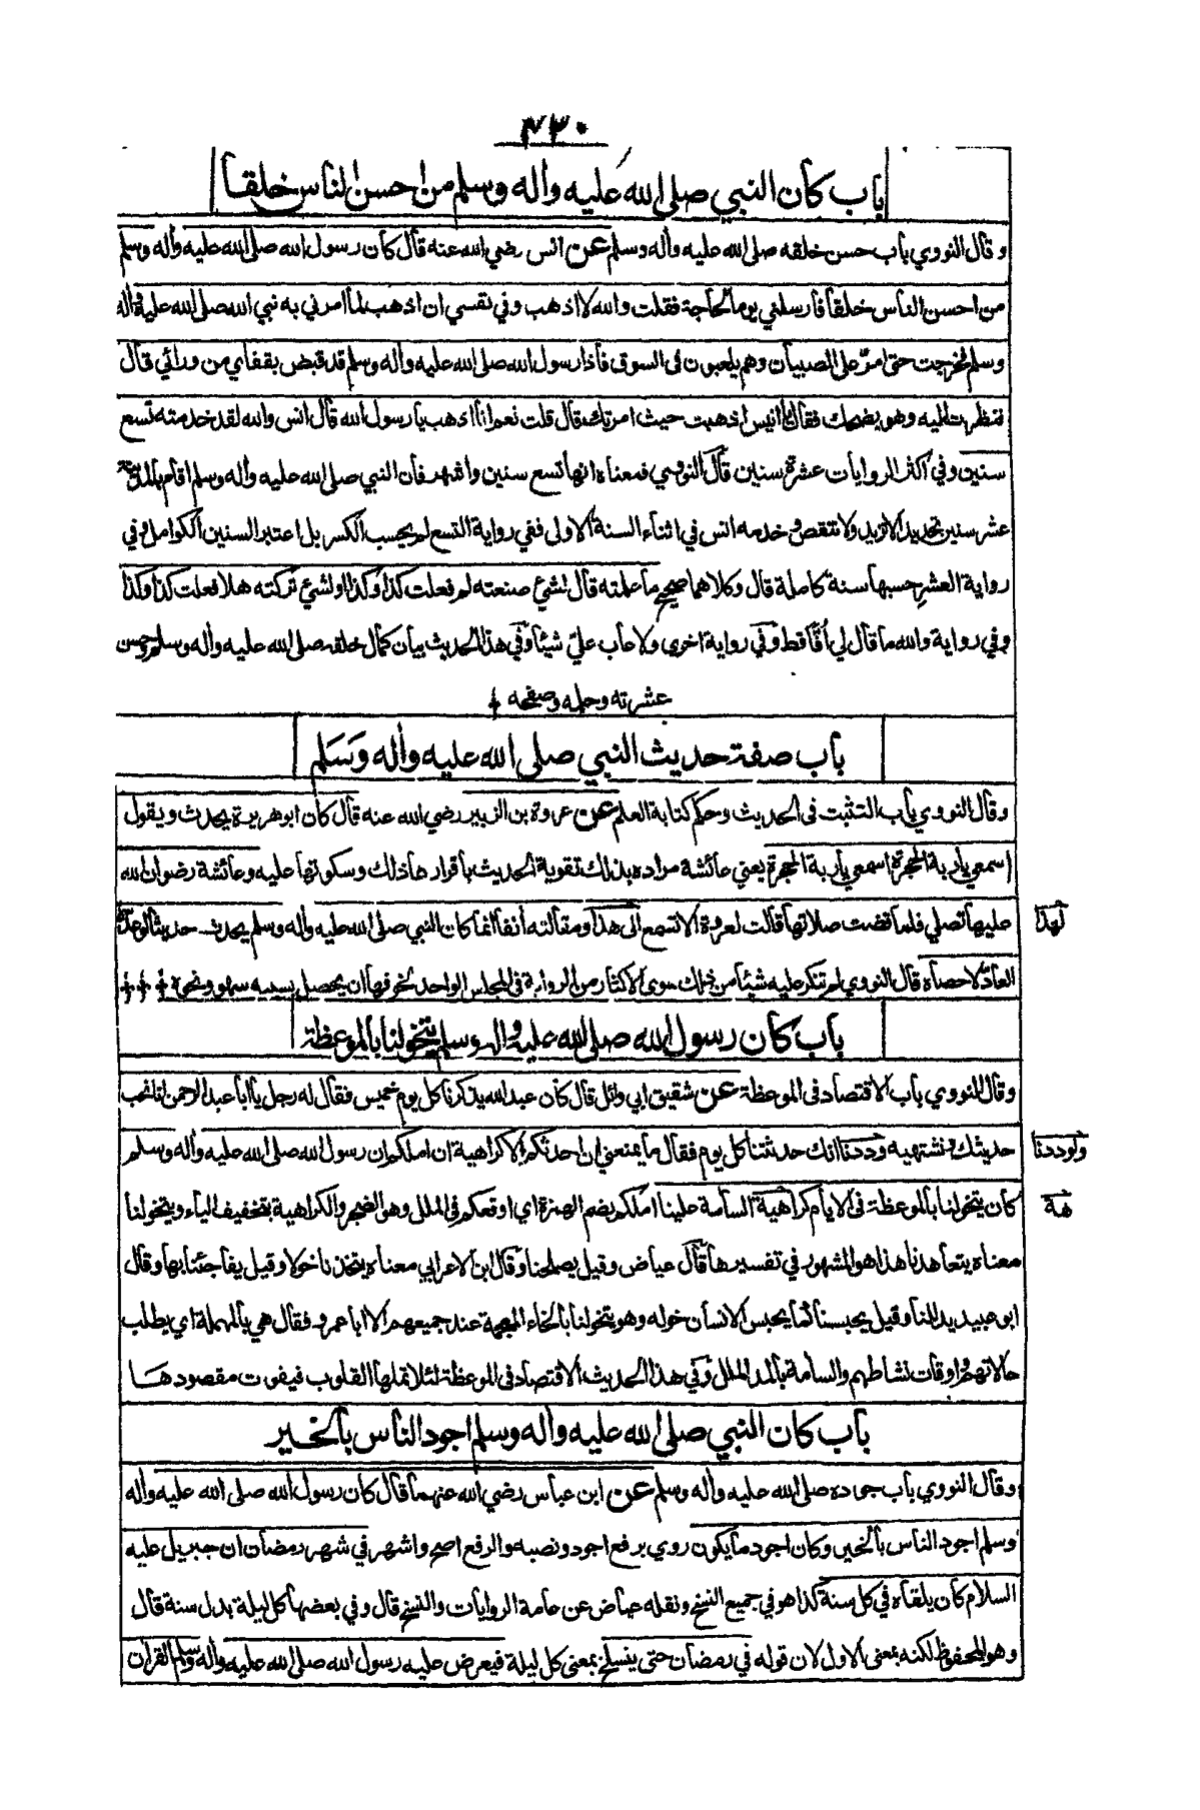 ۴۳۰
باب كان النبي صلى الله عليه واله وسلم من احسن الناس خلقا
وقال النووي باب حسن خلقه صلى الله عليه واله وسلم عن انس رضي الله عنه قال كان رسول الله صلى الله عليه واله وسلم
من احسن الناس خلقا فارسلني يوما لحاجة فقلت والله لا اذهب وفي نفسي ان اذهب لما امرني به نبي الله صلى الله عليه واله
وسلم فخرجت حتى امرّ على الصبيان وهم يلعبون في السوق فاذا رسول الله صلى الله عليه واله وسلم قد قبض بقفاي من ورائي قال
فنظرت اليه وهو يضحك فقال يا انيس اذهبت حيث امرتك قال قلت نعم انا اذهب يا رسول الله قال انس والله لقد خدمته تسع
سنين وفي اكثر الروايات عشرة سنين قال النووي فمعناه انها تسع سنين واشهر فان النبي صلى الله عليه واله وسلم اقام بالمدينة
عشر سنين تحديدا لا تزيد ولا تنقص وخدمه انس في اثناء السنة الاولى ففي رواية التسع لم يحسب الكسر بل اعتبر السنين الكوامل وفي
رواية العشر حسبها سنة كاملة قال وكلاهما صحيح ما علمته قال لشئ صنعته لم فعلت كذا وكذا او لشئ تركته هلا فعلت كذا وكذا
وفي رواية والله ما قال لي أفّا قط وفي رواية اخرى ولا عاب عليّ شيئا وفي هذا الحديث بيان كمال خلقه صلى الله عليه واله وسلم وحسن
عشرته وحلمه وصفحه
باب صفة حديث النبي صلى الله عليه واله وَسَلم
وقال النووي باب التثبت في الحديث وحكم كتابة العلم عن عروة بن الزبير رضي الله عنه قال كان ابو هريرة يحدث ويقول
اسمعي يا ربة الحجرة اسمعي يا ربة الحجرة يعني عائشة مراده بذلك تقوية الحديث باقرارها ذلك وسكوتها عليه وعائشة رضوان الله
عليها تصلي فلما قضت صلاتها قالت لعروة الا تسمع الى هذا ومقالته انفا انما كان النبي صلى الله عليه واله وسلم يحدث حديثا لو عدّه
لهذا
العادّ لاحصاه قال النووي لم تنكر عليه شيئا من ذلك سوى الاكثار من الرواية في المجلس الواحد لخوفها ان يحصل بسببه سهو ونحوه
باب كان رسول الله صلى الله عليه واله وسلم يتخولنا بالموعظة
وقال النووي باب الاقتصاد في الموعظة عن شقيق ابي وائل قال كان عبد الله يذكرنا كل يوم خميس فقال له رجل يا ابا عبد الرحمن انا نحب
حديثك ونشتهيه وددنا انك حدثتنا كل يوم فقال ما يمنعني ان احدثكم الا كراهية ان املكم ان رسول الله صلى الله عليه واله وسلم
ولوددنا
كان يتخولنا بالموعظة في الايام كراهية السآمة علينا املكم بضم الهمزة اي اوقعكم في الملل وهو الضجر والكراهية بتخفيف الياء ويتخولنا
هة
معناه يتعاهدنا هذا هو المشهور في تفسيرها قال عياض وقيل يصلحنا وقال ابن الاعرابي معناه يتخذنا خولا وقيل يفاجئنا بها وقال
ابو عبيد يدللنا وقيل يحبسنا كما يحبس الانسان خوله وهو يتخولنا بالخاء المعجمة عند جميعهم الا ابا عمرو فقال هي بالمهملة اي يطلب
حالاتهم واوقات نشاطهم والسآمة بالمد الملل وفي هذا الحديث الاقتصاد في الموعظة لئلا تملها القلوب فيفوت مقصودها
باب كان النبي صلى الله عليه واله وسلم اجود الناس بالخير
وقال النووي باب جوده صلى الله عليه واله وسلم عن ابن عباس رضي الله عنهما قال كان رسول الله صلى الله عليه واله
وسلم اجود الناس بالخير وكان اجود ما يكون روي برفع اجود ونصبه والرفع اصح واشهر في شهر رمضان ان جبريل عليه
السلام كان يلقاه في كل سنة كذا هو في جميع النسخ ونقله عياض عن عامة الروايات والنسخ قال وفي بعضها كل ليلة بدل سنة قال
وهو المحفوظ لكنه بمعنى الاول لان قوله في رمضان حتى ينسلخ بمعنى كل ليلة فيعرض عليه رسول الله صلى الله عليه واله وسلم القران